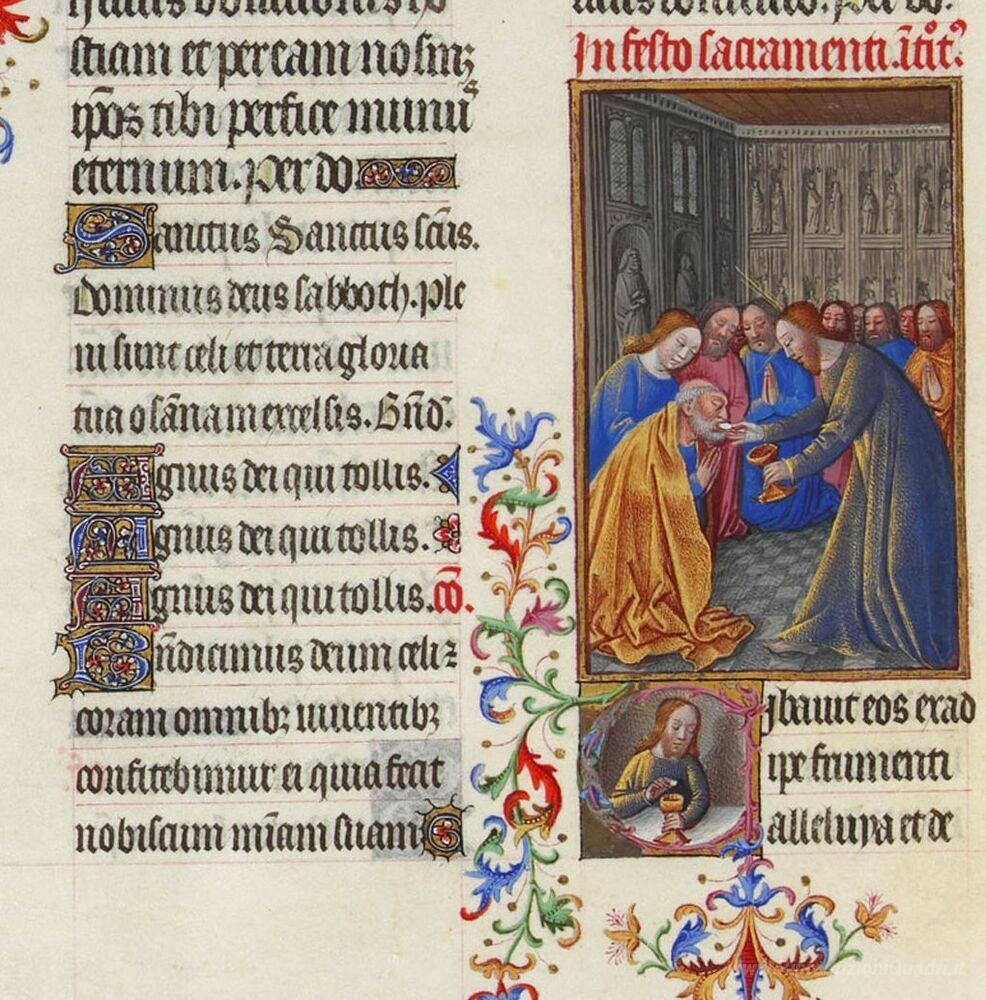 stiam et peream nosmꝫ
ip̄os tibi perfice munuˢ
eternum. Per do
Sanctus Sanctus sc̄us.
Dominus deus sabboth. Ple
ni sunt celi et terra gloria
tua osāna in excelsis. Bn̄d.
Agnus dei qui tollis.
Agnus dei qui tollis.
Agnus dei qui tollis. cō.
Bn̄dicimus deum celi ⁊
coram omnibꝫ uiuentibꝫ
confitebimur ei quia fecit
nobiscum mīam suam
In festo sacramenti. ītͦitꝰ
Cibauit eos ex ad
ipe frumenti
alleluya et de